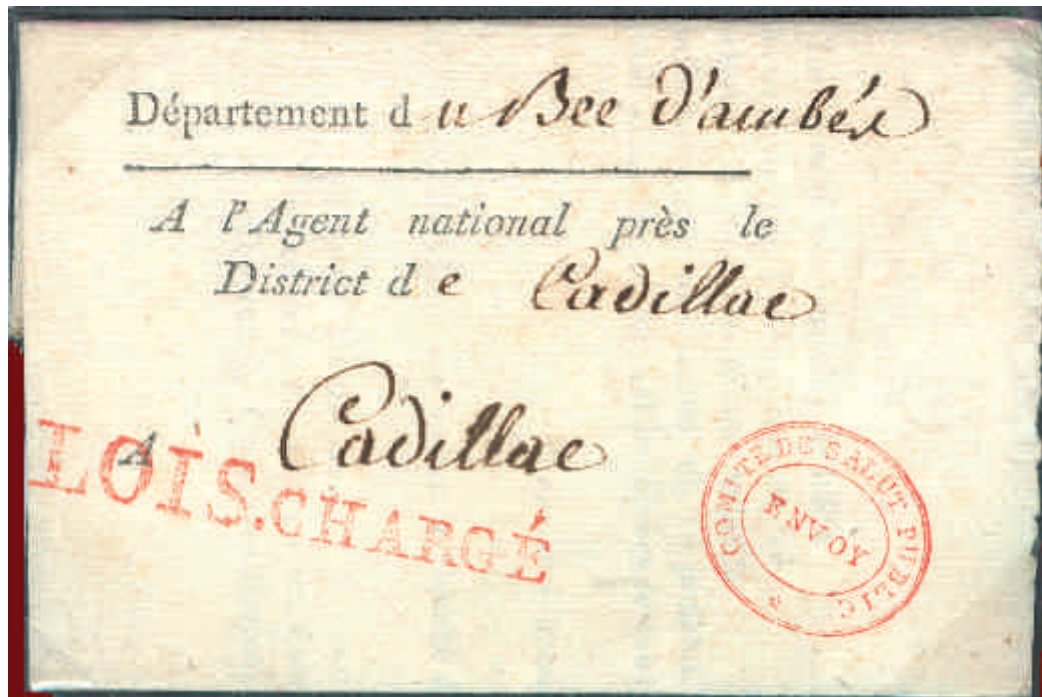 Département du Bec d'ambés
A l'Agent national près le
District de Cadillac
A Cadillac
LOIS.CHARGÉ
COMITÉ DE SALUT PUBLIC
ENVOY